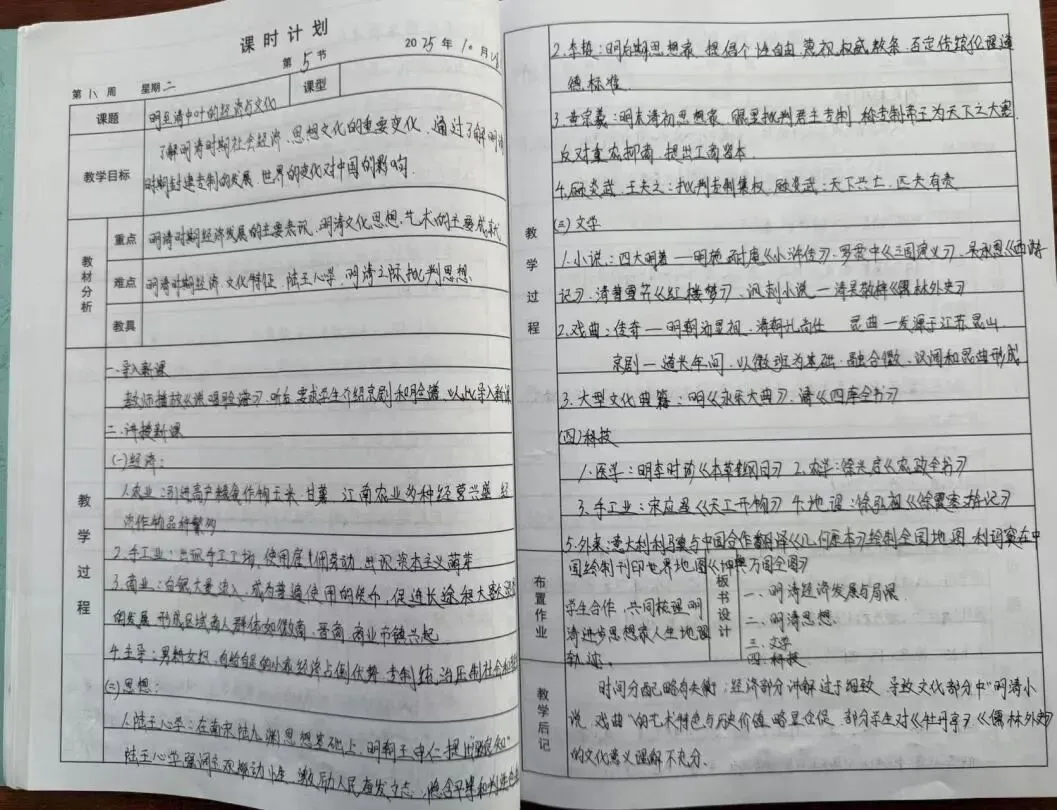 课时计划
第 5 节
2025年10月
第八周 星期二
课型
课题
明至清中叶的经济与文化
教学目标
了解明清时期社会经济、思想文化的重要变化,通过了解明清
时期封建专制的发展、世界的变化对中国的影响.
教材分析
重点
明清时期经济发展的主要表现、明清文化思想、艺术的主要成就
难点
明清时期经济、文化特征、陆王心学、明清之际批判思想.
教具
教学过程
一.导入新课
教师播放《说唱脸谱》,听后要求学生介绍京剧和脸谱,以此导入新课
二.讲授新课
(一)经济:
1.农业:引进高产粮食作物玉米、甘薯,江南农业多种经营兴盛,经
济作物品种繁多
2.手工业:出现手工工场,使用雇佣劳动,出现资本主义萌芽
3.商业:白银大量流入,成为普遍使用的货币,促进长途和大宗贸易
的发展,形成区域商人群体如徽商、晋商,商业市镇兴起
4.主导:男耕女织、自给自足的小农经济占倒优势,专制统治压制社会和
(二)思想:
1.陆王心学:在南宋陆九渊思想基础上,明朝王守仁提出"致良知"
陆王心学强调主观能动性,激励人民奋发立志,隐含平等和
2.李贽:明后期思想家,提倡个性自由,蔑视权威教条,否定传统伦理道
德标准.
3.黄宗羲:明末清初思想家,眼里批判君主专制,称专制帝王为天下之大害,
反对重农抑商,提出工商皆本.
4.顾炎武、王夫之:批判专制集权,顾炎武:天下兴亡,匹夫有责
教学过程
(三)文学
1.小说:四大名著——明施耐庵《水浒传》、罗贯中《三国演义》、吴承恩《西游
记》、清曹雪芹《红楼梦》、讽刺小说——清吴敬梓《儒林外史》
2.戏曲:传奇——明朝汤显祖、清朝孔尚任 昆曲——发源于江苏昆山
京剧——道光年间,以徽班为基础,融合徽、汉调和昆曲形成
3.大型文化典籍:明《永乐大典》、清《四库全书》
(四)科技
1.医学:明李时珍《本草纲目》 2.农学:徐光启《农政全书》
3.手工业:宋应星《天工开物》 4.地理:徐弘祖《徐霞客游记》
5.外来:意大利利玛窦与中国合作翻译《几何原本》绘制全国地图,利玛窦在中
国绘制刊印世界地图《坤舆万国全图》
布置作业
学生合作,共同梳理明
清进步思想家人生地理
轨迹。
板书设计
一、明清经济发展与局限.
二、明清思想.
三.文学
四.科技
教学后记
时间分配略有失衡:经济部分讲解过于细致,导致文化部分中"明清小
说、戏曲"的艺术特色与历史价值略显仓促,部分学生对《牡丹亭》《儒林外史》
的文化意义理解不充分.